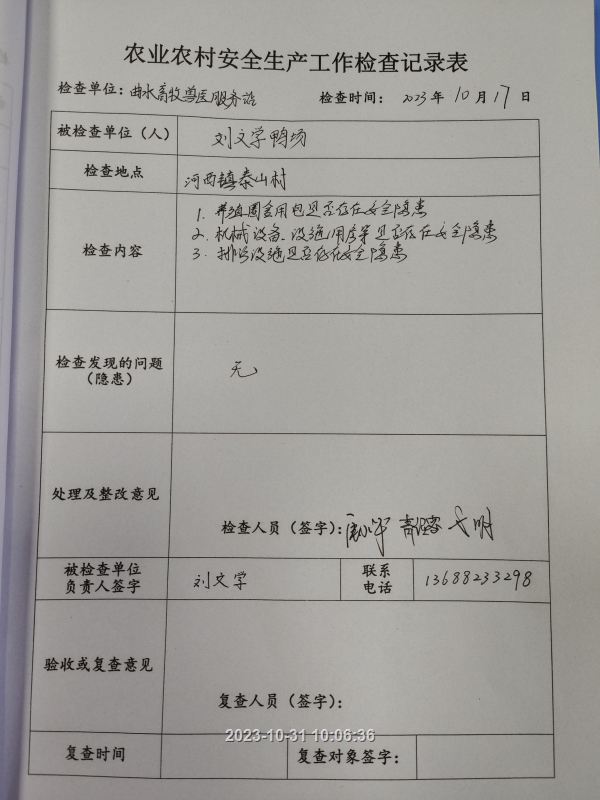 农业农村安全生产工作检查记录表
检查单位：曲水畜牧兽医服务站 检查时间： 2023年10月17日
被检查单位（人） 刘文学鸭场
检查地点 河西镇泰山村
检查内容
1. 养殖圈舍用电是否存在安全隐患
2. 机械设备、设施用房等是否存在安全隐患
3. 排污设施是否存在安全隐患
检查发现的问题
（隐患）
无
处理及整改意见
检查人员（签字）：
被检查单位
负责人签字
刘文学
联系
电话
13688233298
验收或复查意见
复查人员（签字）：
2023-10-31 10:06:36
复查时间 复查对象签字：